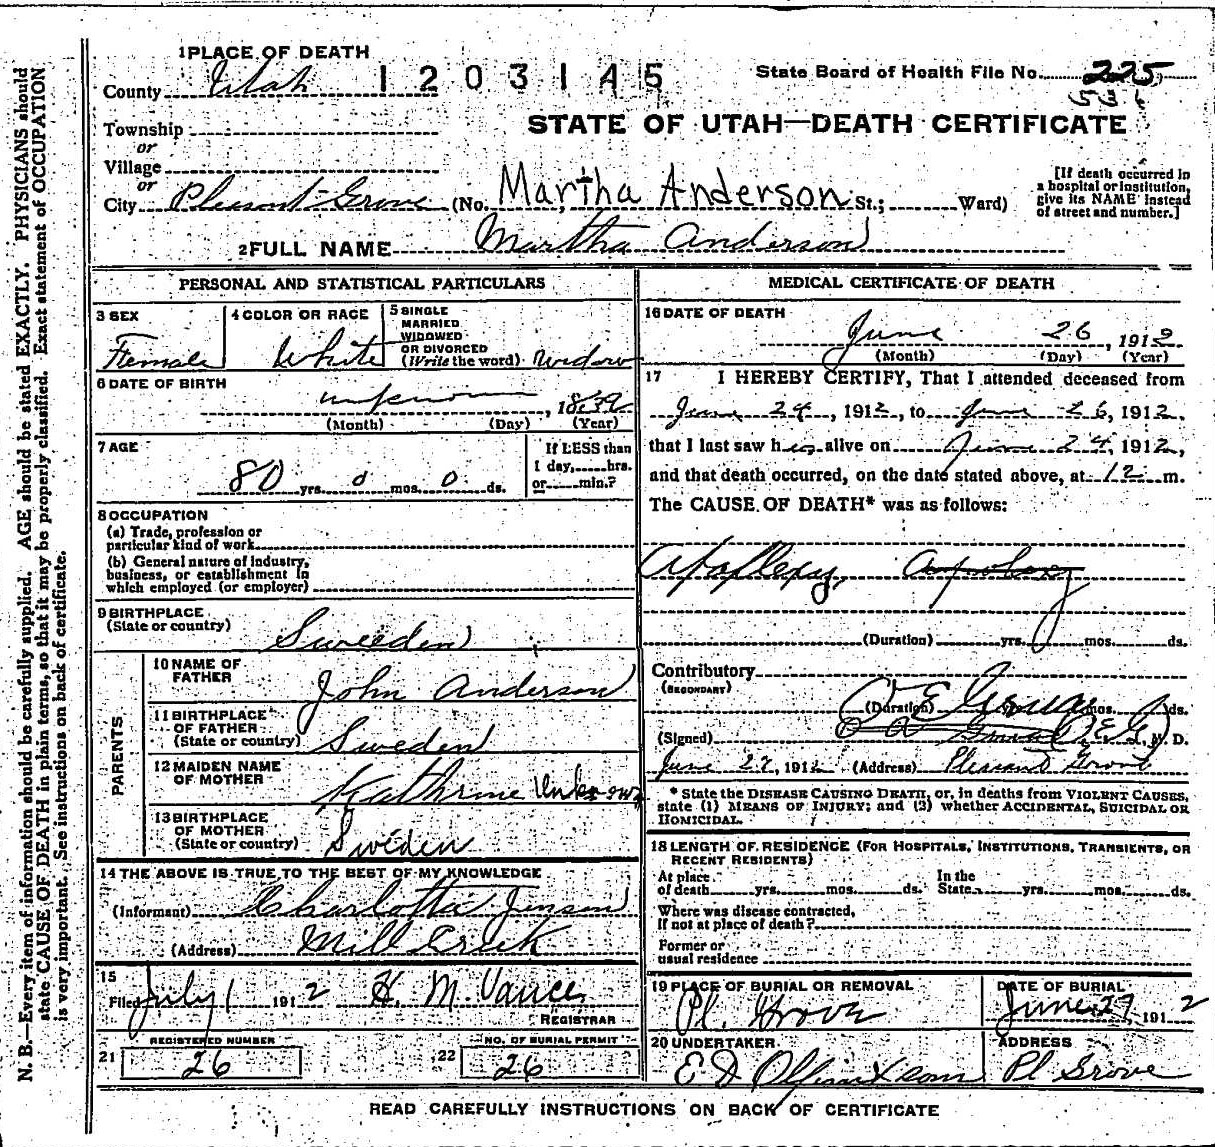 1 PLACE OF DEATH
County Utah 1203145 State Board of Health File No. 225
536
Township
STATE OF UTAH—DEATH CERTIFICATE
or
Village
or
City Pleasant Grove (No. Martha Anderson St.; Ward)
[If death occurred in
a hospital or institution,
give its NAME instead
of street and number.]
2 FULL NAME Martha Anderson
PERSONAL AND STATISTICAL PARTICULARS
3 SEX
Female
4 COLOR OR RACE
White
5 SINGLE
MARRIED
WIDOWED
OR DIVORCED
(Write the word) widow
6 DATE OF BIRTH
unknown, 18
(Month) (Day) (Year)
7 AGE
80 yrs. 0 mos. 0 ds.
If LESS than
1 day, hrs.
or min.?
8 OCCUPATION
(a) Trade, profession or
particular kind of work
(b) General nature of industry,
business, or establishment in
which employed (or employer)
9 BIRTHPLACE
(State or country) Sweeden
PARENTS
10 NAME OF
FATHER John Anderson
11 BIRTHPLACE
OF FATHER
(State or country) Sweden
12 MAIDEN NAME
OF MOTHER Kathrine Unknown
13 BIRTHPLACE
OF MOTHER
(State or country) Sweden
14 THE ABOVE IS TRUE TO THE BEST OF MY KNOWLEDGE
(Informant) Charlotte Jenson
(Address) Mill Creek
15
Filed July 1 1912 H. M. Vance
REGISTRAR
REGISTERED NUMBER
21 26
NO. OF BURIAL PERMIT
22 26
MEDICAL CERTIFICATE OF DEATH
16 DATE OF DEATH
June 26, 1912
(Month) (Day) (Year)
17 I HEREBY CERTIFY, That I attended deceased from
June 24, 1912, to June 26, 1912,
that I last saw her alive on June 24, 1912,
and that death occurred, on the date stated above, at 12 m.
The CAUSE OF DEATH* was as follows:
Apoplexy,
(Duration) yrs. mos. ds.
Contributory
(SECONDARY)
(Duration) yrs. mos. ds.
(Signed) M. D.
June 27, 1912 (Address) Pleasant Grove
* State the DISEASE CAUSING DEATH, or, in deaths from VIOLENT CAUSES,
state (1) MEANS OF INJURY; and (2) whether ACCIDENTAL, SUICIDAL OR
HOMICIDAL.
18 LENGTH OF RESIDENCE (FOR HOSPITALS, INSTITUTIONS, TRANSIENTS, OR
RECENT RESIDENTS)
At place
of death yrs. mos. ds.
In the
State yrs. mos. ds.
Where was disease contracted,
If not at place of death?
Former or
usual residence
19 PLACE OF BURIAL OR REMOVAL
Pl. Grove
DATE OF BURIAL
June 27, 1912
20 UNDERTAKER
E D
ADDRESS
Pl Grove
READ CAREFULLY INSTRUCTIONS ON BACK OF CERTIFICATE
N. B.—Every item of information should be carefully supplied. AGE should be stated EXACTLY. PHYSICIANS should
state CAUSE OF DEATH in plain terms, so that it may be properly classified. Exact statement of OCCUPATION
is very important. See instructions on back of certificate.